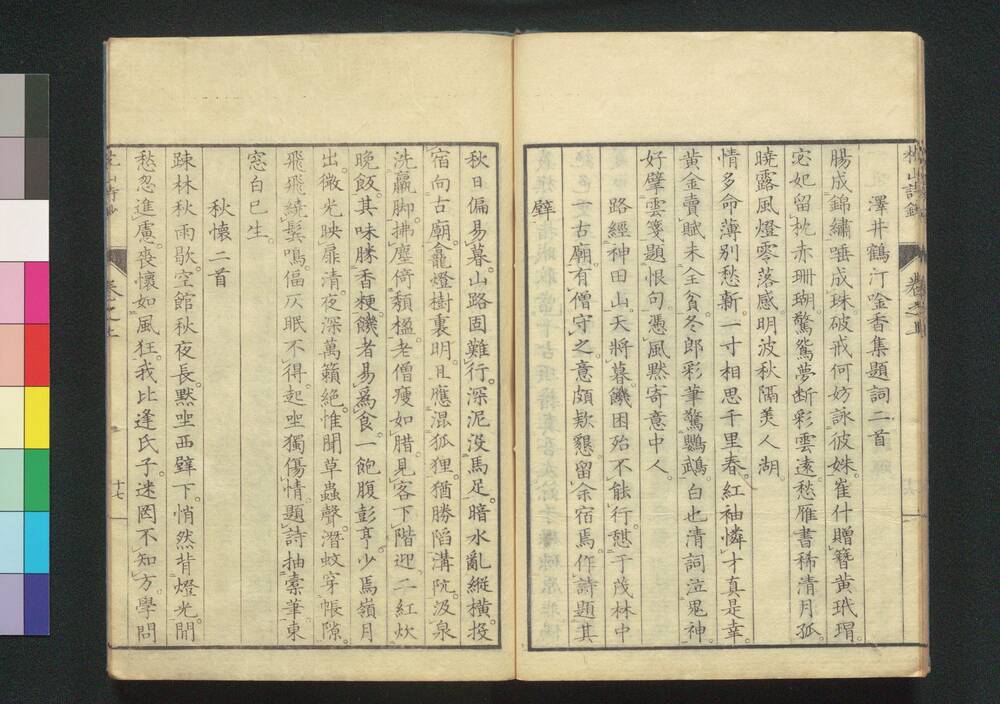 澤井鶴汀唫香集題詞二首
腸成錦繡唾成珠。破戒何妨詠彼姝。崔什贈簪黃玳瑁。
宓妃留枕赤珊瑚。驚鴛夢断彩雲遠。愁雁書稀清月孤。
曉露風燈零落感。明波秋隔美人湖。
情多命薄別愁新。一寸相思千里春。紅袖憐才真是幸。
黃金賣賦未全貧。冬郎彩筆驚鸚鵡。白也清詞泣鬼神。
好擘雲箋題恨句。憑風默寄意中人。
路經神田山。天將暮。饑困殆不能行。憇于茂林中
一古廟。有僧守之。意頗欵懇。留余宿焉。作詩題其
壁
秋日偏易暮。山路固難行。深泥没馬足。暗水亂縱橫。投
宿向古廟。龕燈樹裏明。且應混狐狸。猶勝陷溝阬。汲泉
洗羸脚。拂塵倚頽楹。老僧瘦如腊。見客下階迎。二紅炊
晚飯。其味勝香粳。饑者易爲食。一飽腹彭亨。少焉嶺月
出。微光映扉清。夜深萬籟絕。惟聞草蟲聲。潛蚊穿帳隙。
飛飛繞鬓鳴。偪仄眠不得。起坐獨傷情。題詩抽橐筆。東
窓白已生。
秋懷二首
踈林秋雨歇。空館秋夜長。默坐西壁下。悄然背燈光。閒
愁忽進慮。喪懷如風狂。我比逢氏子。迷罔不知方。學問
卷之上
十七